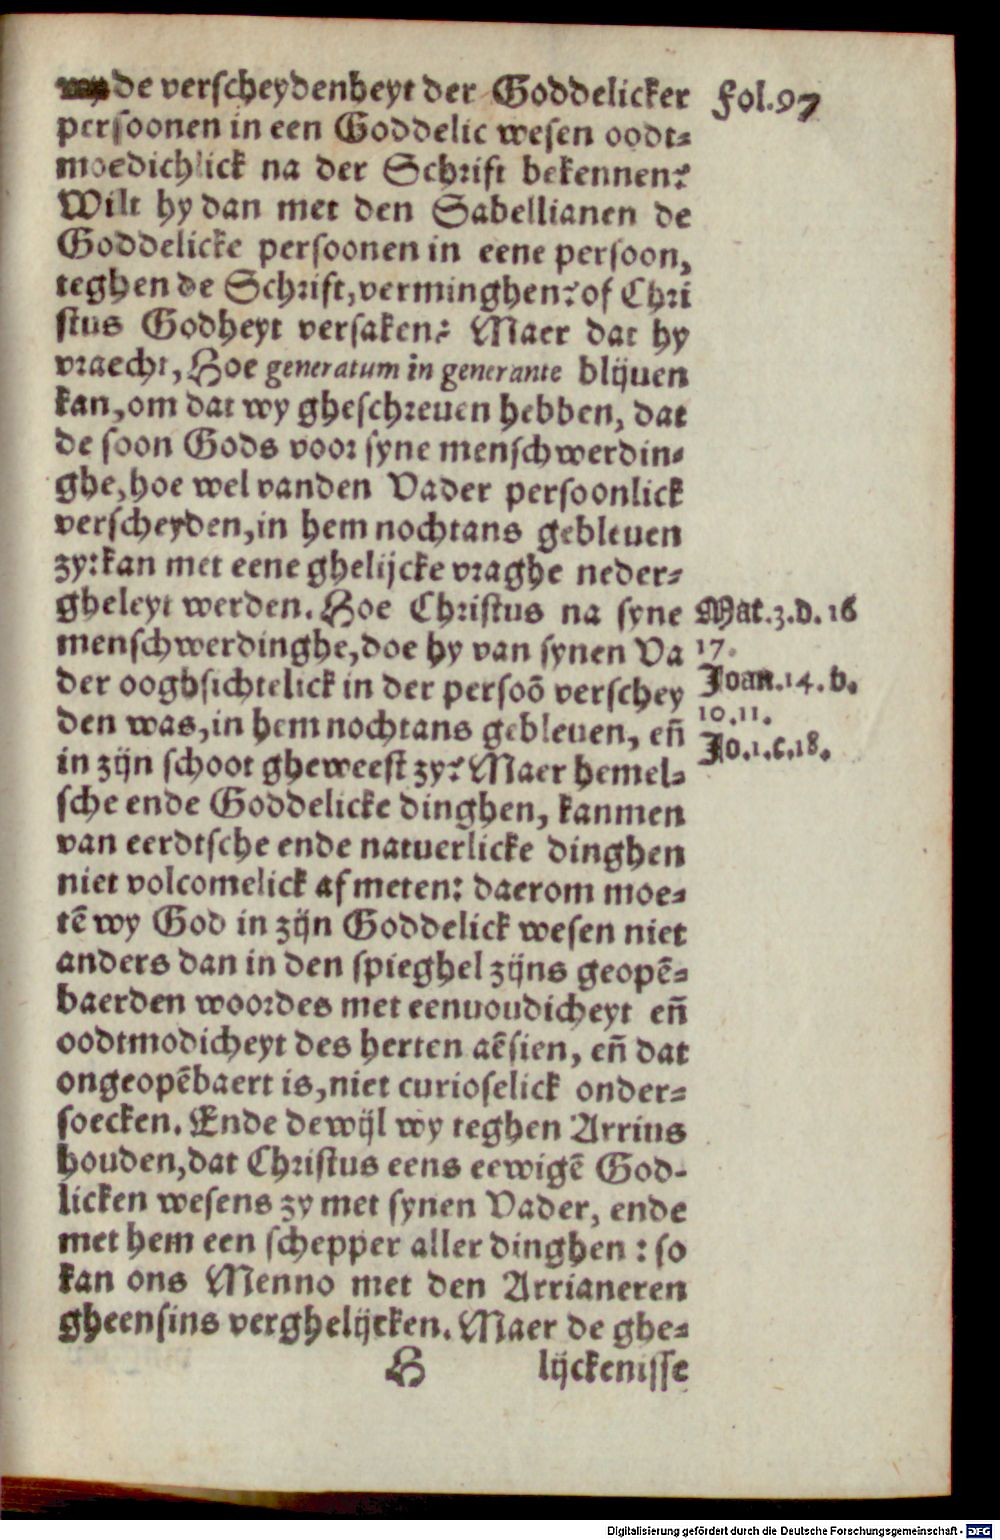 de verscheydenheyt der Goddelicker
Fol. 97
persoonen in een Goddelic wesen oodt-
moedichlick na der Schrift bekennen?
Wilt hy dan met den Sabellianen de
Goddelicke persoonen in eene persoon,
teghen de Schrift, verminghen? of Chri
stus Godheyt versaken? Maer dat hy
vraecht, Hoe generatum in generante blijuen
kan, om dat wy gheschreuen hebben, dat
de soon Gods voor syne menschwerdin-
ghe, hoe wel vanden Vader persoonlick
verscheyden, in hem nochtans gebleuen
zy: kan met eene ghelijcke vraghe neder-
gheleyt werden. Hoe Christus na syne
Mat. 3. d. 16
menschwerdinghe, doe hy van synen Va
17.
der ooghsichtelick in der persoō verschey
Joan. 14. b.
den was, in hem nochtans gebleuen, eñ
10. 11.
in zijn schoot gheweest zy? Maer hemel-
Jo. 1. c. 18.
sche ende Goddelicke dinghen, kanmen
van eerdtsche ende natuerlicke dinghen
niet volcomelick af meten: daerom moe-
tē wy God in zijn Goddelick wesen niet
anders dan in den spieghel zijns geopē-
baerden woordes met eenuoudicheyt eñ
oodtmodicheyt des herten aēsien, eñ dat
ongeopēbaert is, niet curioselick onder-
soecken. Ende dewijl wy teghen Arrius
houden, dat Christus eens eewigē God-
licken wesens zy met synen Vader, ende
met hem een schepper aller dinghen : so
kan ons Menno met den Arrianeren
gheensins verghelijcken. Maer de ghe-
H lijckenisse
Digitalisierung gefördert durch die Deutsche Forschungsgemeinschaft - DFG